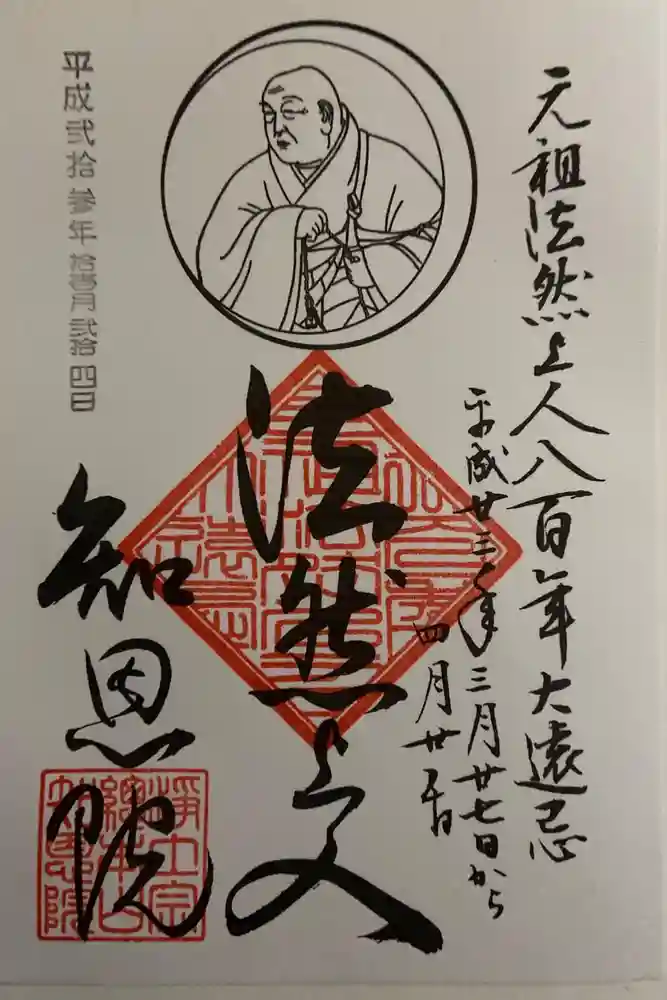 元祖法然上人八百年大遠忌
平成廿三年三月廿七日から
四月廿五日
法然上人
知恩院
平成弐拾参年拾壱月弐拾四日
浄土宗
総本山
知恩院